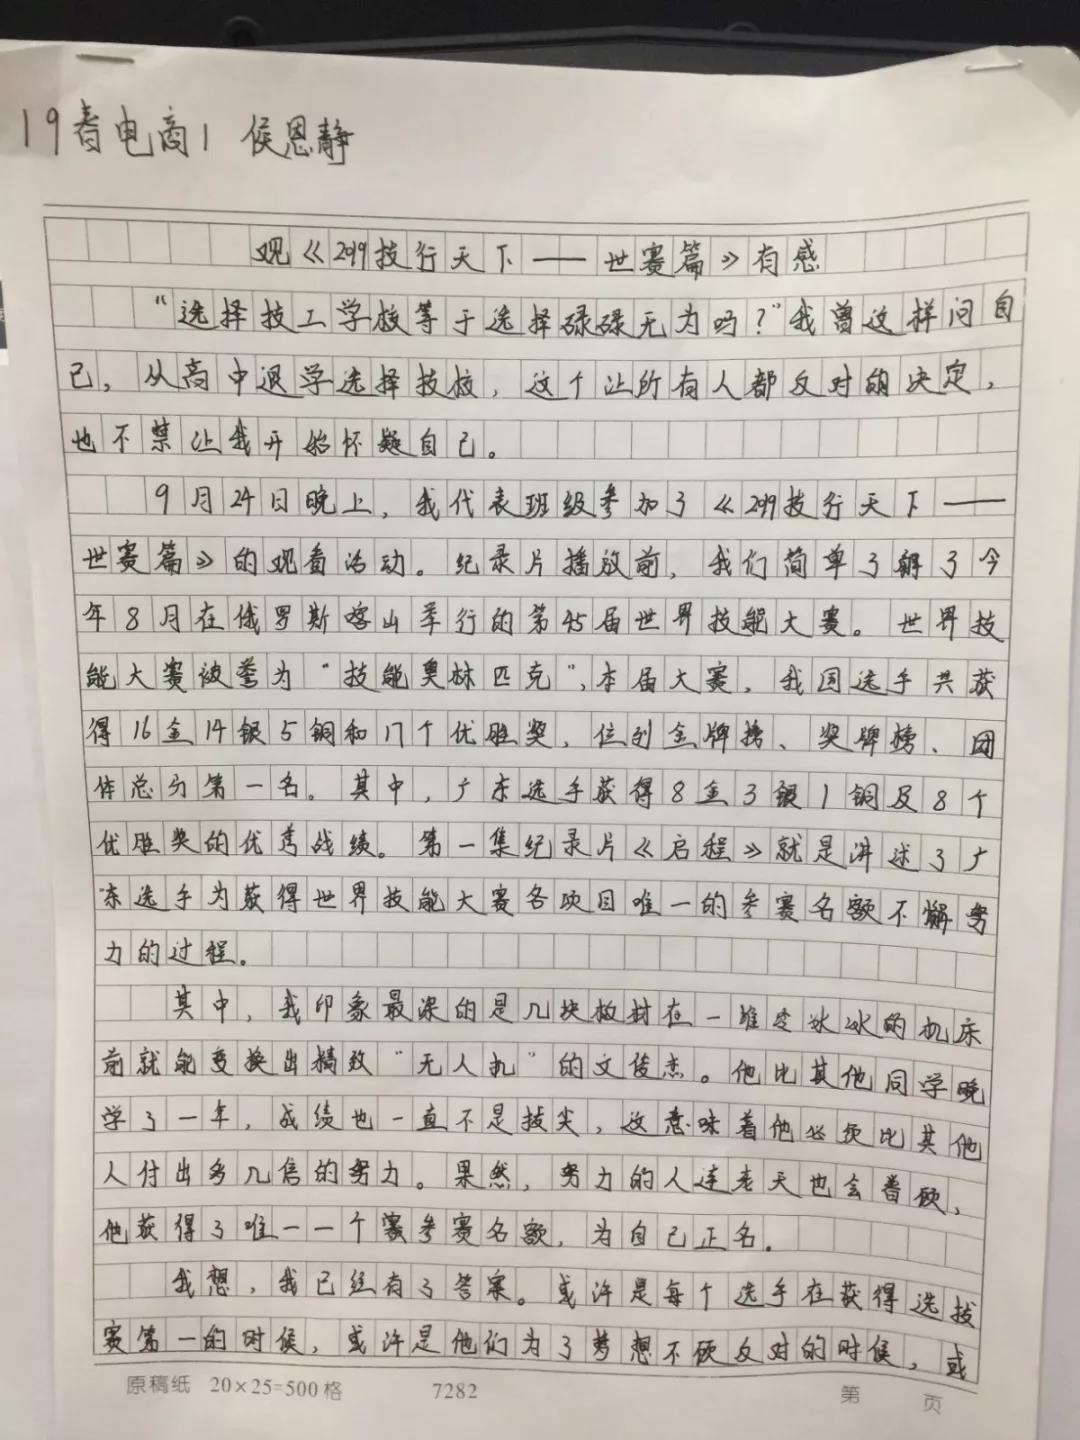 19春电商1 侯恩静
观《2019技行天下——世赛篇》有感
“选择技工学校等于选择碌碌无为吗？”我曾这样问自
己，从高中退学选择技校，这个让所有人都反对的决定，
也不禁让我开始怀疑自己。
9月24日晚上，我代表班级参加了《2019技行天下——
世赛篇》的观看活动。纪录片播放前，我们简单了解了今
年8月在俄罗斯喀山举行的第45届世界技能大赛。世界技
能大赛被誉为“技能奥林匹克”，本届大赛，我国选手共获
得16金14银5铜和17个优胜奖，位列金牌榜、奖牌榜、团
体总分第一名。其中，广东选手获得8金3银1铜及8个
优胜奖的优秀战绩。第一集纪录片《启程》就是讲述了广
东选手为获得世界技能大赛各项目唯一的参赛名额不懈努
力的过程。
其中，我印象最深的是几块板封在一堆冷冰冰的机床
前就能变换出精致“无人机”的文俊杰。他比其他同学晚
学了一年，成绩也一直不是拔尖，这意味着他必须比其他
人付出多几倍的努力。果然，努力的人连老天也会眷顾，
他获得了唯一一个赛参赛名额，为自己正名。
我想，我已经有了答案。或许是每个选手在获得选拔
赛第一的时候，或许是他们为了梦想不顾反对的时候，或
原稿纸 20×25=500格 7282 第 页